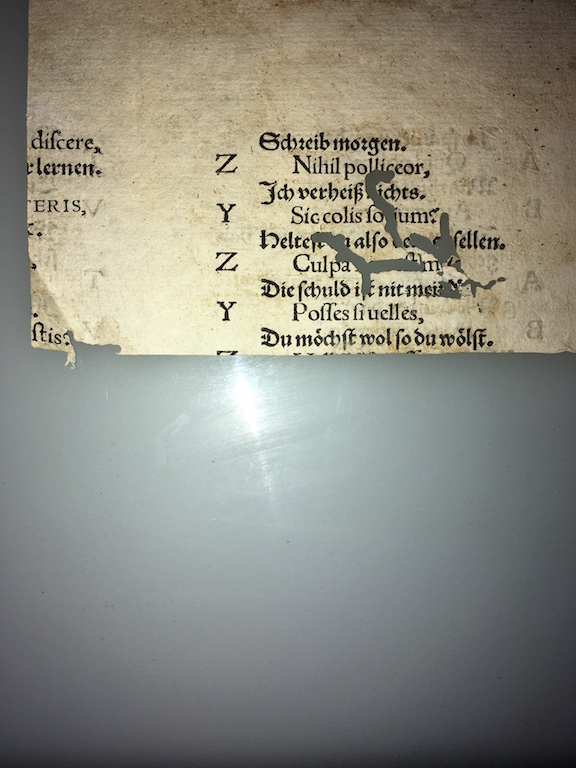 discere,
lernen.
TERIS,
stis:
Schreib morgen.
Z Nihil polliceor,
Ich verheiß
Y Sic colis
also
Z Culpa
Die schuld ist nit mein
Y Posses si uelles,
Du möchst wol so du wölst.